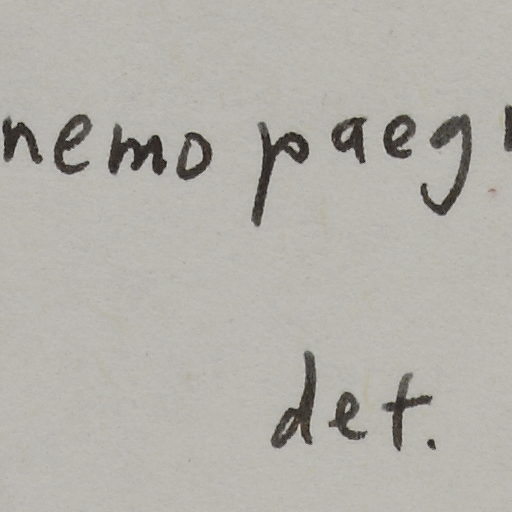 nemopaeg
det.